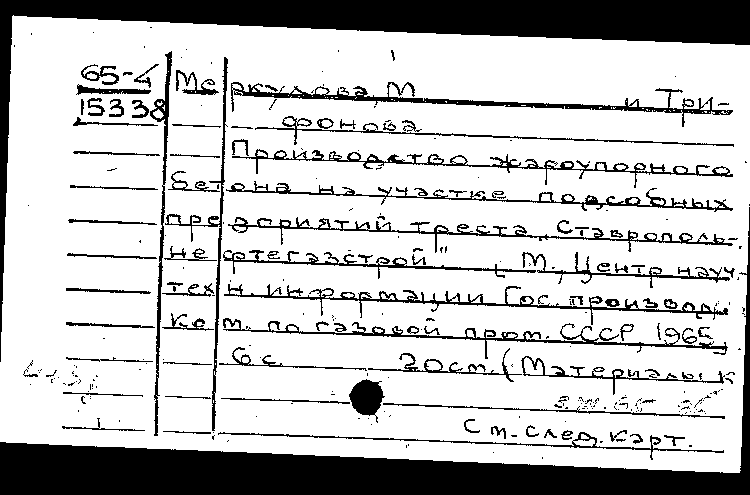 65-4 Меркулова, М и Три-
15338
фонова
Производство жароупорного
бетона на участке подсобных
предприятий треста „Ставрополь-
нефтегазстрой". М., Центр науч.-
техн. информации Гос. производ.
ком. по газовой пром. СССР, 1965.
6 с. 20см. (Материалы к
См. след. карт.